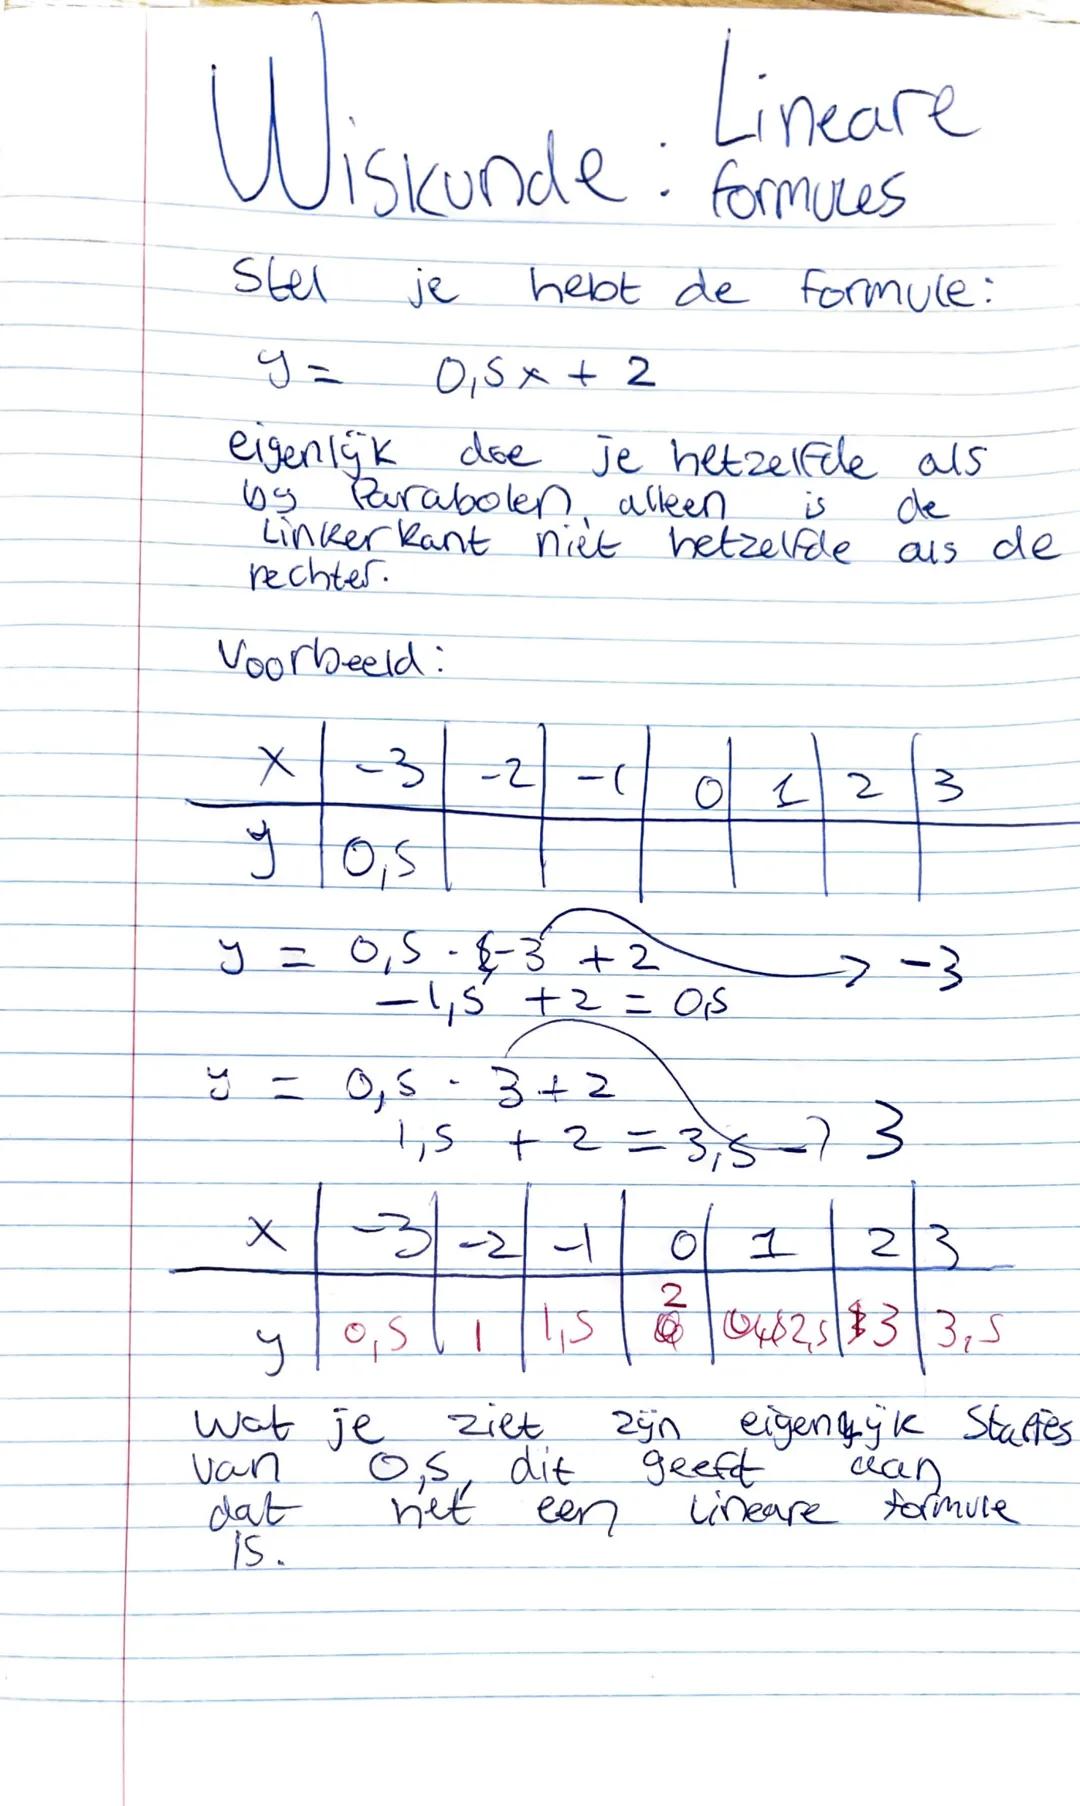 Wiskunde: Lineare
formules
Stel je hebt de formule:
y = 0,5x + 2
eigenlijk doe je hetzelfde als
bij Parabolen, alleen is de
Linkerkant niet hetzelfde als de
rechter.
Voorbeeld:
x | -3 | -2 | -1 | 0 | 1 | 2 | 3
y | 0,5
y = 0,5 · -3 + 2 → -3
-1,5 + 2 = 0,5
y = 0,5 · 3 + 2
1,5 + 2 = 3,5 → 3
x | -3 | -2 | -1 | 0 | 1 | 2 | 3
y | 0,5 | 1 | 1,5 | 2 | 2,5 | 3 | 3,5
Wat je ziet zijn eigenlijk Stapjes
van 0,5, dit geeft aan
dat het een lineare formule
is.